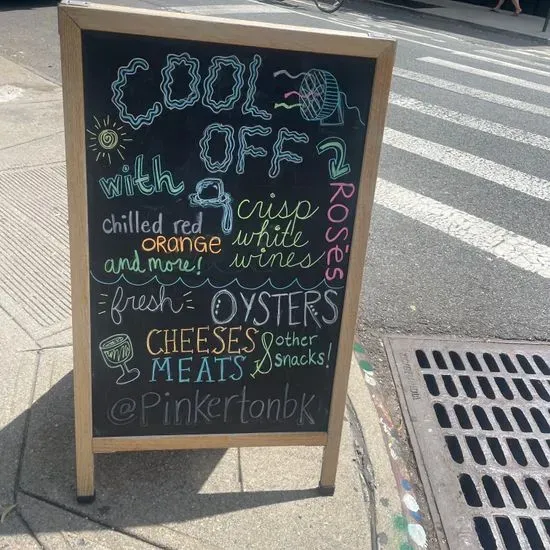 COOL
OFF
with 9 crisp
chilled red white
ORANGE wines
and more!
ROSÉS
fresh OYSTERS
CHEESES & other
MEATS snacks!
@Pinkertonbk